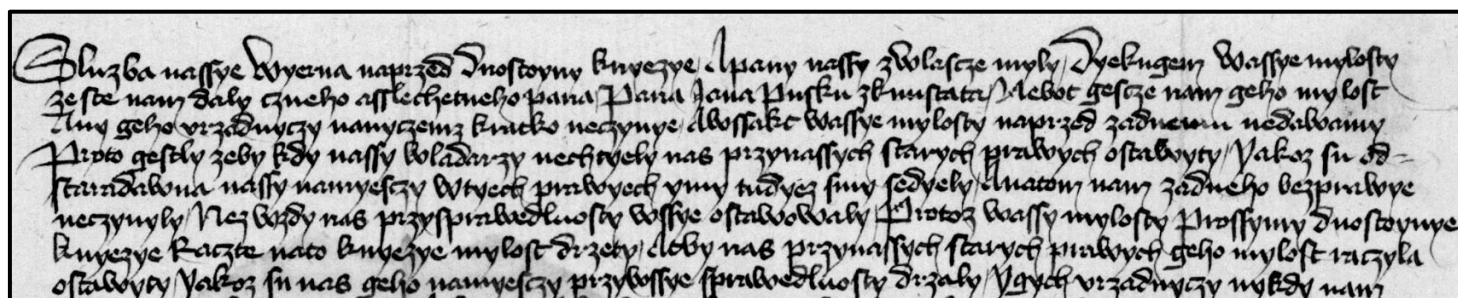 Sluzba nassye Wyerna naprzed Duostoyny knyezye Apany nassy zwlascze myly Dyekugem wassye mylosty
ze ste nam daly czneho asslechetneho pana Pana Jana Pusku zkunstata Nebot gescze nam geho mylost
Any geho vrzadnyczy nanyczemz kratko neczynye Awssakt wassye mylosty naprzed zadnemu nedawamy
Proto gestly zeby kdy nassy wladarzy nechtyely nas przynassych starych prawych ostawyty Jakoz su od=
staradawna nassy namyesczy wtyech prawyech ymy tudyez smy sedyely Anatom nam zadneho bezprawye
neczynyly Nez wzdy nas przysprawedlnosty wssye ostawowaly Protoz wassy mylosty Prossymy duostoynye
knyezye Raczte nato knyezye mylost drzety Atby nas przynassych starych prawych geho mylost raczyla
ostawyty Jakoz su nas geho namyesczy przywssye sprawedlnosty drzaly Ygych vrzadnyczy nykdy nam